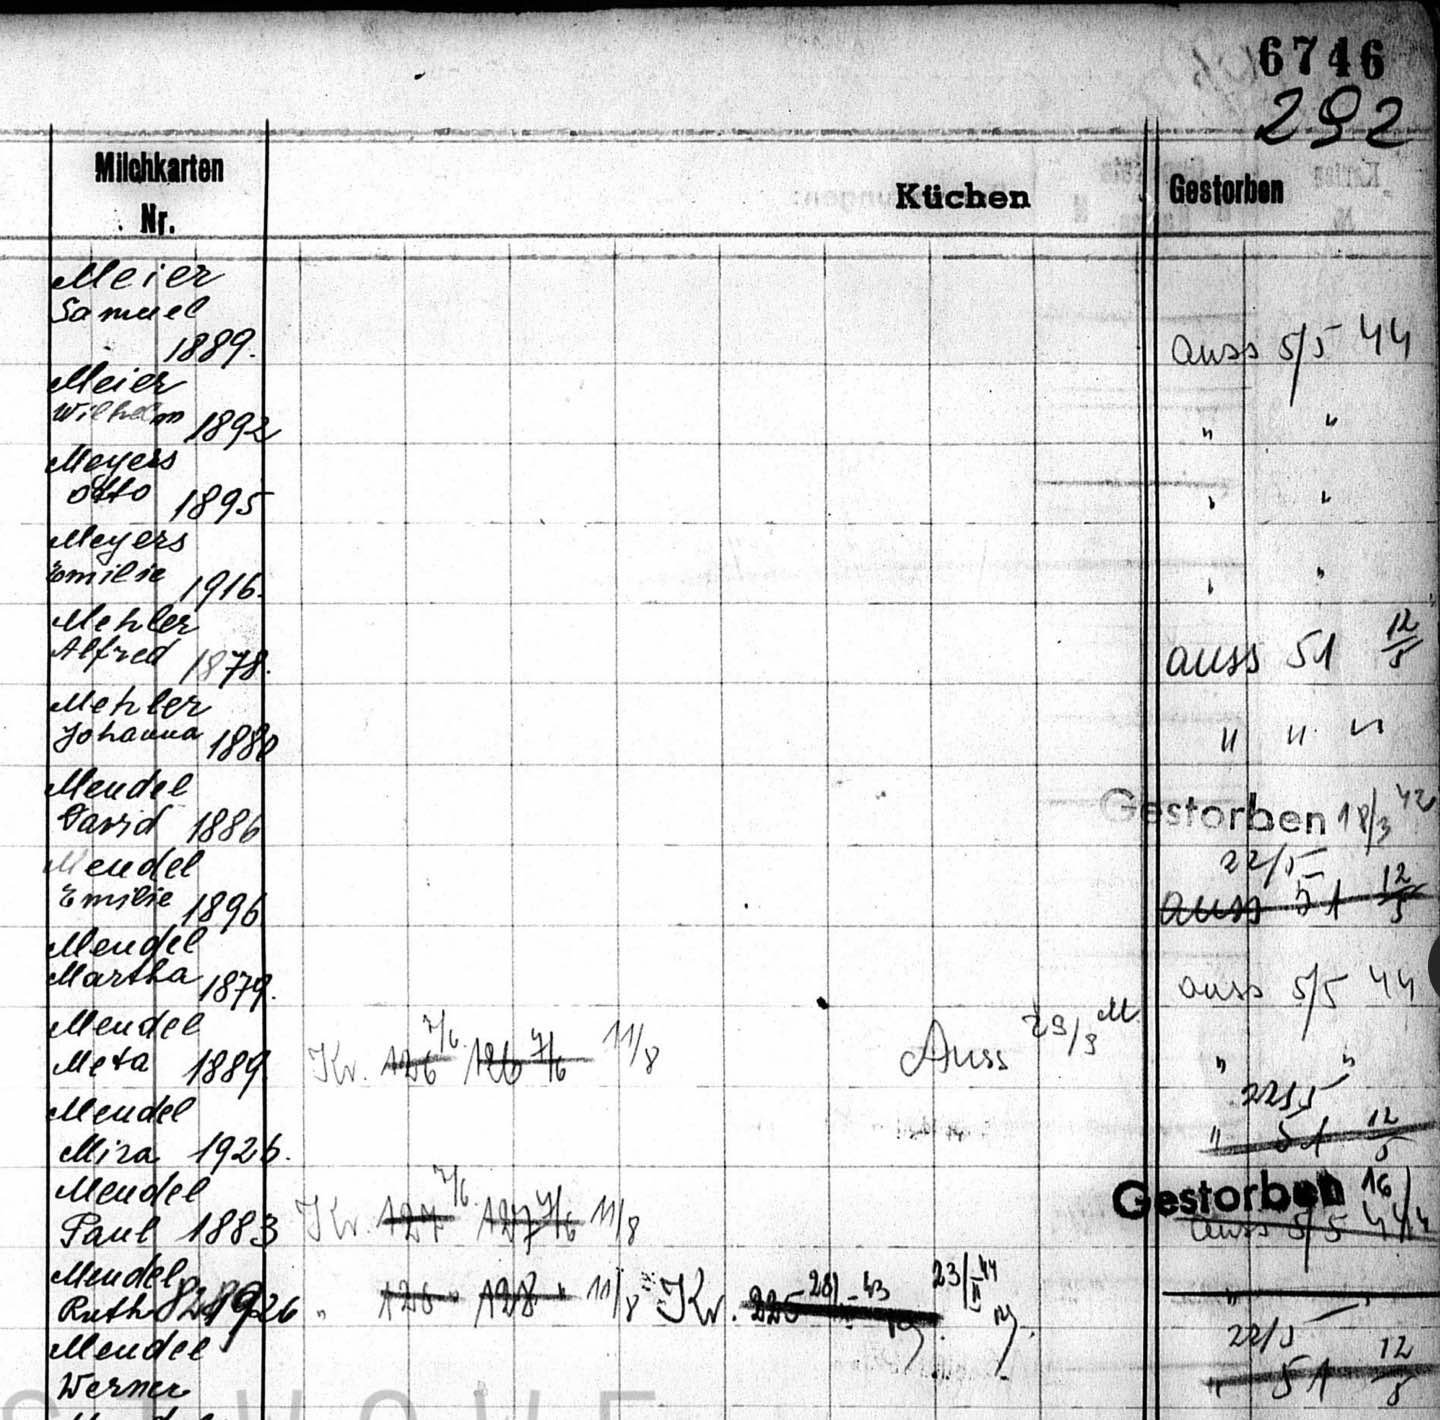 6746
292
Milchkarten Nr. Küchen Gestorben
Meier
Samuel
1889. auss 5/5 44
Meier
Wilhelm 1892 " "
Meyers
Otto 1895 " "
Meyers
Emilie 1916. " "
Mehler
Alfred 1878. auss 51 12/5
Mehler
Johanna 1880 " " "
Mendel
David 1886 Gestorben 18/3 42
Mendel 22/5
Emilie 1896 auss 51 12/5
Mendel
Martha 1879. auss 5/5 44
Mendel
Meta 1889 Kr. 126 7/6 126 7/6 11/8 Auss 29/3 " "
Mendel 22/5
Mira 1926. " 51 12/5
Mendel Gestorben 16/
Paul 1883 Kr. 127 7/6 127 7/6 11/8 auss 5/5 44
Mendel
Ruth 1926 " 128 " 11/8 Kr. 225 23/ 44 " "
Mendel 22/5
Werner " 51 12/5